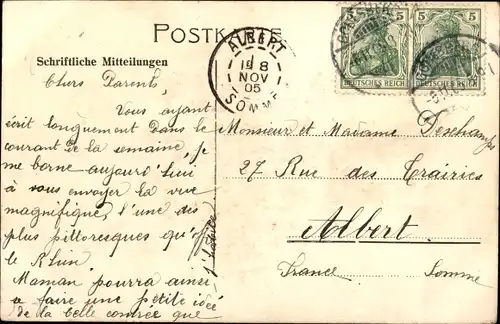 POSTKARTE
Schriftliche Mitteilungen
ALBERT
18
NOV
05
SOMME
5 5
5 5
DEUTSCHES REICH
DEUTSCHES REICH
Chers Parents,
Vous ayant
écrit longuement dans le
courant de la semaine, je
me borne aujourd'hui
à vous envoyer la vue
magnifique, l'une des
plus pittoresques qu'
le Rhin
Maman pourra ainsi
se faire une petite idée
de la belle contrée que
Monsieur et Madame Deschamps
27 Rue des
Albert
France Somme